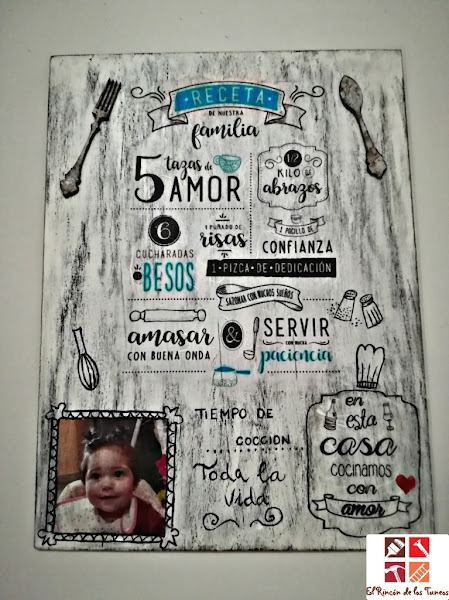 RECETA
DE NUESTRA
familia
5 tazas de
AMOR
1/2
KILO de
abrazos
6
CUCHARADAS
de
BESOS
1 PUÑADO DE
risas
1 POCILLO DE
CONFIANZA
1 PIZCA DE DEDICACIÓN
SAZONAR CON MUCHOS SUEÑOS
amasar
CON BUENA ONDA
&
SERVIR
CON MUCHA
paciencia
TIEMPO DE
COCCION
Toda la
Vida
en
esta
CASA
COCINAMOS
con
amor
El Rincón de los Tuneos